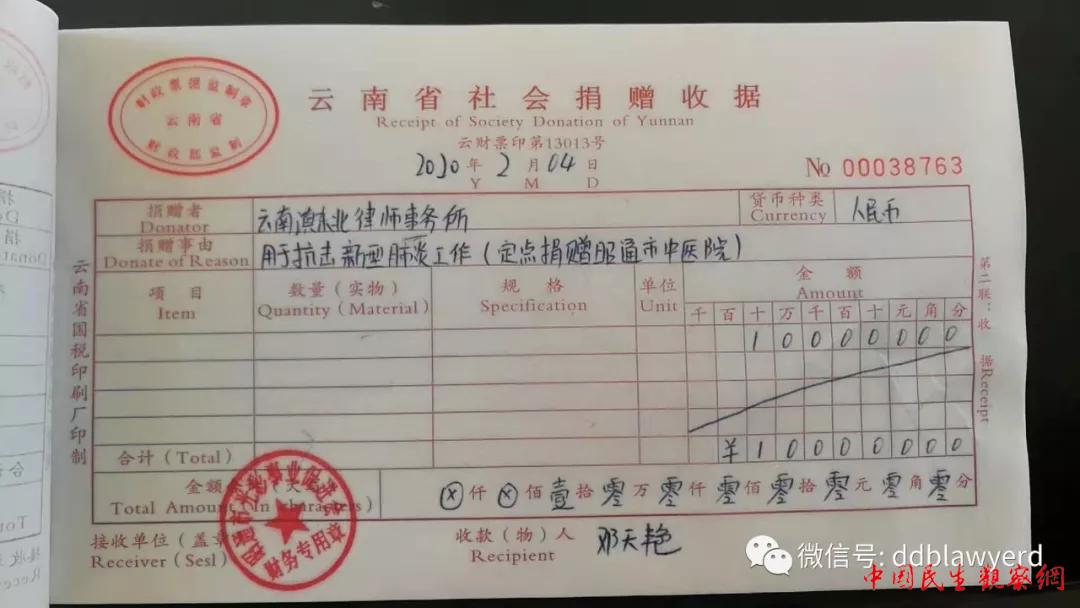 财政票据监制章
云南省
财政部监制
云南省社会捐赠收据
Receipt of Society Donation of Yunnan
云财票印第13013号
2020年2月04日
Y M D
No 00038763
捐赠者
Donator
云南滇东北律师事务所
货币种类
Currency
人民币
捐赠事由
Donate of Reason
用于抗击新型肺炎工作(定点捐赠昭通市中医院)
项目
Item
数量(实物)
Quantity(Material)
规格
Specification
单位
Unit
金额
Amount
千百十万千百十元角分
1 0 0 0 0 0 0 0 0
合计(Total)
¥ 1 0 0 0 0 0 0 0 0
金额
Total Amount (In characters)
ⓧ仟ⓧ佰壹拾零万零仟零佰零拾零元零角零分
接收单位(盖章
Receiver(Sesl)
财务专用章
收款(物)人
Recipient
邓天艳
云南省国税印刷厂印制
第二联:收据Receipt
微信号: ddblawyerd
中国民生观察網